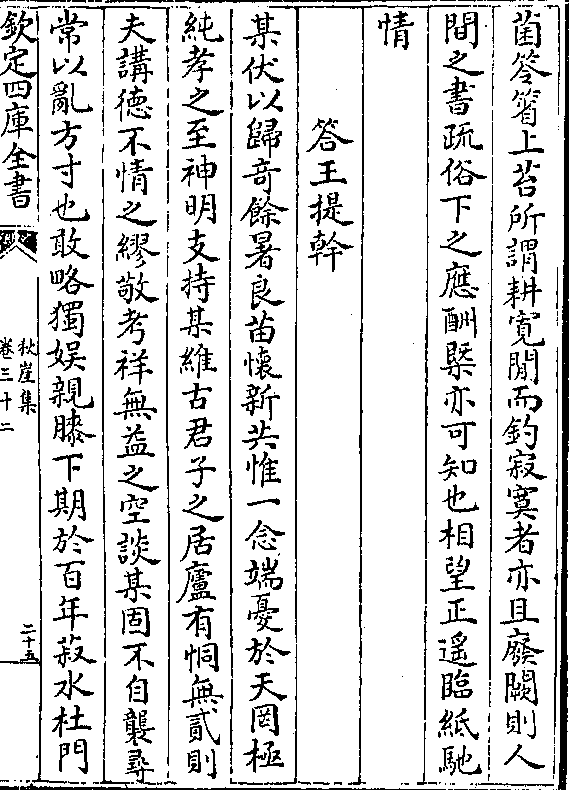 菌答箵上苔所謂耕寛閒而釣寂寞者亦且廢闕則人
間之書疏俗下之應酬槩亦可知也相望正遥臨紙馳
情
答王提幹
某伏以歸竒餘暑良苗懐新共惟一念端憂於天罔極
純孝之至神明支持某維古君子之居廬有恫無貳則
夫講徳不情之繆敬考祥無益之空談某固不自襲尋
常以亂方寸也敢略獨娯親膝下期於百年菽水杜門
欽定四庫全書
秋崖集
卷三十二
二十五